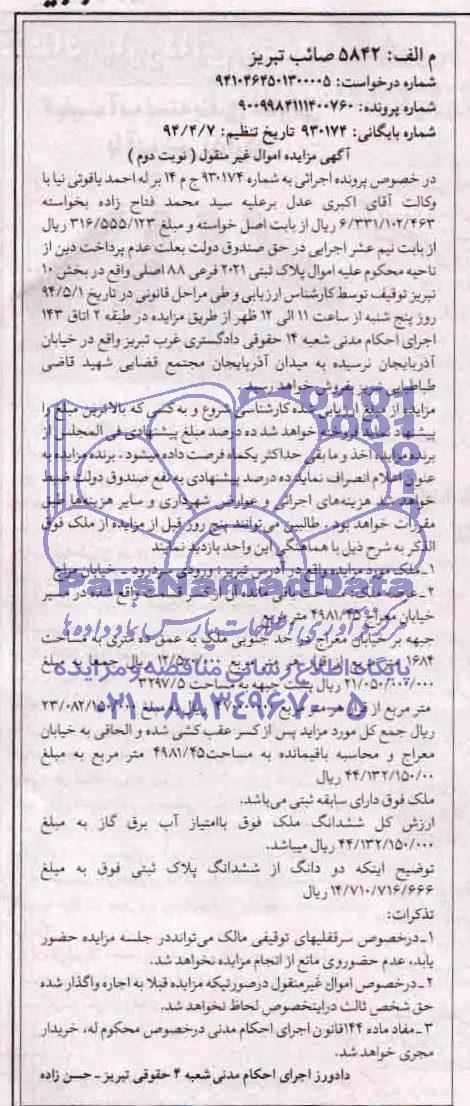 م الف: ۵۸۴۲ صائب تبریز
شماره درخواست: ۹۴۱۰۴۶۴۵۰۱۳۰۰۰۰۵
شماره پرونده: ۹۰۰۹۹۸۴۱۱۱۴۰۰۷۶۰
شماره بایگانی: ۹۳۰۱۷۴ تاریخ تنظیم: ۹۴/۴/۷
آگهی مزایده اموال غیر منقول ( نوبت دوم )
در خصوص پرونده اجرائی به شماره ۹۳۰۱۷۴ ج م ۱۴ بر له احمد یاقوتی نیا با
وکالت آقای اکبری عدل برعلیه سید محمد فتاح زاده بخواسته
۶/۳۳۱/۱۰۲/۴۶۳ ریال از بابت اصل خواسته و مبلغ ۳۱۶/۵۵۵/۱۲۳ ریال
از بابت نیم عشر اجرایی در حق صندوق دولت بعلت عدم پرداخت دین از
ناحیه محکوم علیه اموال پلاک ثبتی ۲۰۲۱ فرعی ۸۸ اصلی واقع در بخش ۱۰
تبریز توقیف توسط کارشناس ارزیابی و طی مراحل قانونی در تاریخ ۹۴/۵/۱
روز پنج شنبه از ساعت ۱۱ الی ۱۲ ظهر از طریق مزایده در طبقه ۲ اتاق ۱۴۳
اجرای احکام مدنی شعبه ۱۴ حقوقی دادگستری غرب تبریز واقع در خیابان
آذربایجان نرسیده به میدان آذربایجان مجتمع قضایی شهید قاضی
طباطبایی تبریز بفروش خواهد رسید.
مزایده از مبلغ ارزیابی شده کارشناسی شروع و به کسی که بالاترین مبلغ را
پیشنهاد نماید فروخته خواهد شد ده درصد مبلغ پیشنهادی فی المجلس از
برنده مزایده اخذ و ما بقی حداکثر یکماه فرصت داده میشود. برنده مزایده به
عنوان اعلام انصراف نماید ده درصد پیشنهادی به نفع صندوق دولت ضبط
خواهد شد هزینه‌های اجرائی و عوارض شهرداری و سایر هزینه‌ها طبق
مقررات خواهد بود. طالبین می‌توانند پنج روز قبل از مزایده از ملک فوق
الذکر به شرح ذیل با هماهنگی این واحد بازدید نمایند
۱-ملک مورد مزایده واقع در آدرس تبریز: ورودی سردرود - خیابان معراج
۲- عرصه ملک مساحت باقی مانده آن از کسر واقع شده در مسیر
خیابان معراج ۴۹۸۱/۴۵ متر مربع
جبهه بر خیابان معراج در حد جنوبی ملک به عمق ده متری به مساحت
۱۶۸۴ متر مربع از قرار هر متر مربع ۱۲/۵۰۰/۰۰۰ ریال جمعا به مبلغ
۲۱/۰۵۰/۰۰۰/۰۰۰ ریال پشت جبهه به مساحت ۳۲۹۷/۵
متر مربع از قرار هر متر مربع ریال به مبلغ ۲۳/۰۸۲/۱۵۰/۰۰۰
ریال جمع کل مورد مزاید پس از کسر عقب کشی شده و الحاقی به خیابان
معراج و محاسبه باقیمانده به مساحت۴۹۸۱/۴۵ متر مربع به مبلغ
۴۴/۱۳۲/۱۵۰/۰۰ ریال
ملک فوق دارای سابقه ثبتی می‌باشد.
ارزش کل ششدانگ ملک فوق باامتیاز آب برق گاز به مبلغ
۴۴/۱۳۲/۱۵۰/۰۰۰ ریال میباشد.
توضیح اینکه دو دانگ از ششدانگ پلاک ثبتی فوق به مبلغ
۱۴/۷۱۰/۷۱۶/۶۶۶ ریال
تذکرات:
۱-درخصوص سرقفلیهای توقیفی مالک می‌تواددر جلسه مزایده حضور
یابد، عدم حضوروی مانع از انجام مزایده نخواهد شد.
۲-درخصوص اموال غیرمنقول درصورتیکه مزایده قبلا به اجاره واگذار شده
حق شخص ثالث دراینخصوص لحاظ نخواهد شد.
۳-مفاد ماده ۱۴۴قانون اجرای احکام مدنی درخصوص محکوم له، خریدار
مجری خواهد شد.
دادورز اجرای احکام مدنی شعبه ۴ حقوقی تبریز - حسن زاده
ParsNamadData
مرکز فرآوری اطلاعات پارس نماد داده‌ها
پایگاه اطلاع رسانی مناقصه و مزایده
۰۲۱-۸۸۳۴۹۶۷۰-۵